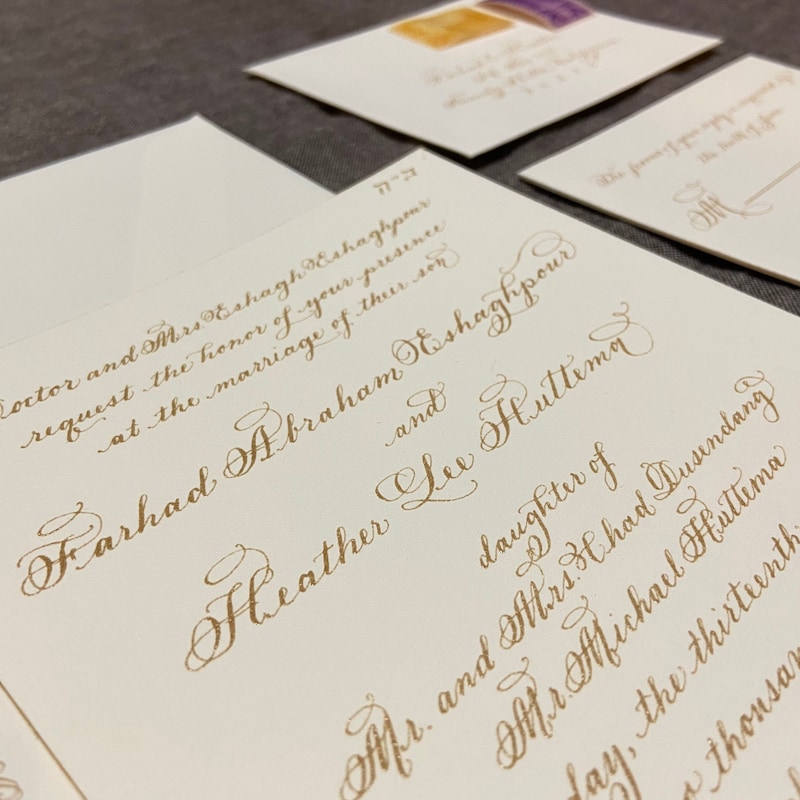 ב״ה
Doctor and Mrs. Eshagh Eshaghpour
request the honor of your presence
at the marriage of their son
Farhad Abraham Eshaghpour
and
Heather Lee Huttema
daughter of
Mr. and Mrs. Chad Dusendang
Mr. Michael Huttema
day, the thirteenth
thousan
The favor of your reply is requested
M